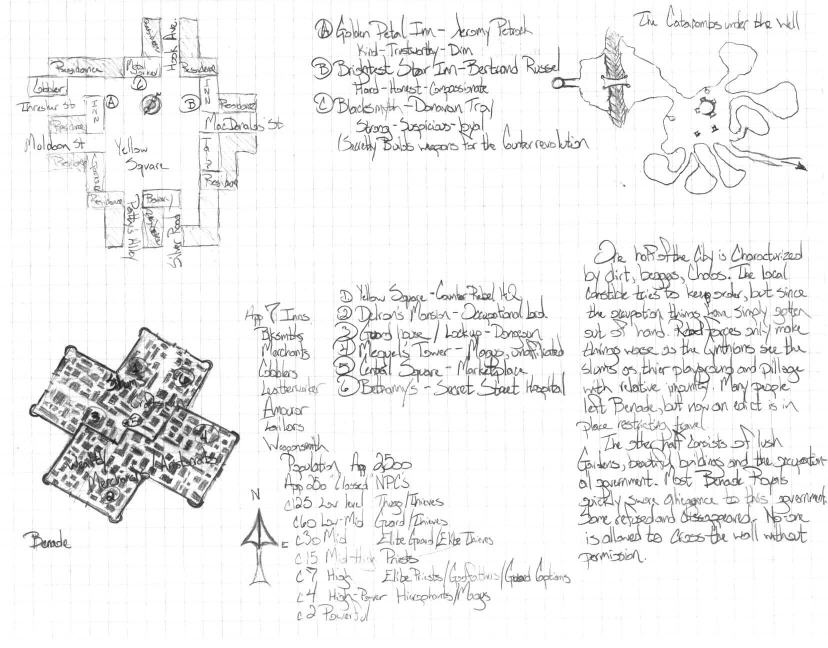 Hook Ave.
Residence
Metal Works
Residence
Cobbler
INN
INN
Thresker St
Residence
Residence
MacDonalds St
Moldoon St
Yellow
Square
Residence
Residence
Residence
Bakery
Potter's Alley
Silver Road
A Golden Petal Inn - Jeromy Petrock
Kind - Trustworthy - Dim
B Brightest Star Inn - Bertrand Russel
Hard - Honest - Compassionate
C Blacksmyth - Donavan Troy
Strong - Suspicious - Loyal
(Secretly Builds weapons for the Counterrevolution
The Catacombs under the Well
1 Yellow Square - Counter Rebel HQ
2 Delron's Mansion - Occupational Lord
3 Guard House / Lockup - Donovan
4 Mequel's Tower - Magus, unaffiliated
5 Central Square - Marketplace
6 Bethanny's - Secret Street Hospital
App 7 Inns
Blksmiths
Merchants
Cobblers
Leatherworker
Amouror
Tailors
Weaponsmith
Population App 2500
App 250 "Classed" NPC's
c125 Low level Thugs/Thieves
c60 Low-Mid Guard/Thieves
c30 Mid Elite Guard/Elite Thieves
c15 Mid-High Priests
c7 High Elite Priests/Godfathers/Guard Captains
c4 High-Power Hierophants/Mages
c2 Powerful
One half of the City is Characterized
by dirt, beggars, Chaos. The local
constible tries to keep order, but since
the occupation things have simply gotten
out of hand. Rebel forces only make
things worse as the Cynthians see the
slums as thier playground and pillage
with relative impunity. Many people
left Benade, but now an edict is in
place restricting travel
The other half consists of lush
Gardens, beautiful buildings and the occupation
al government. Most Benade Royals
quickly swore allegence to this government.
Some refused and dissappeared. No-one
is allowed to cross the wall without
permission.
Slum
Wealthy
Merchant
Aristocratic
Benade
N
E